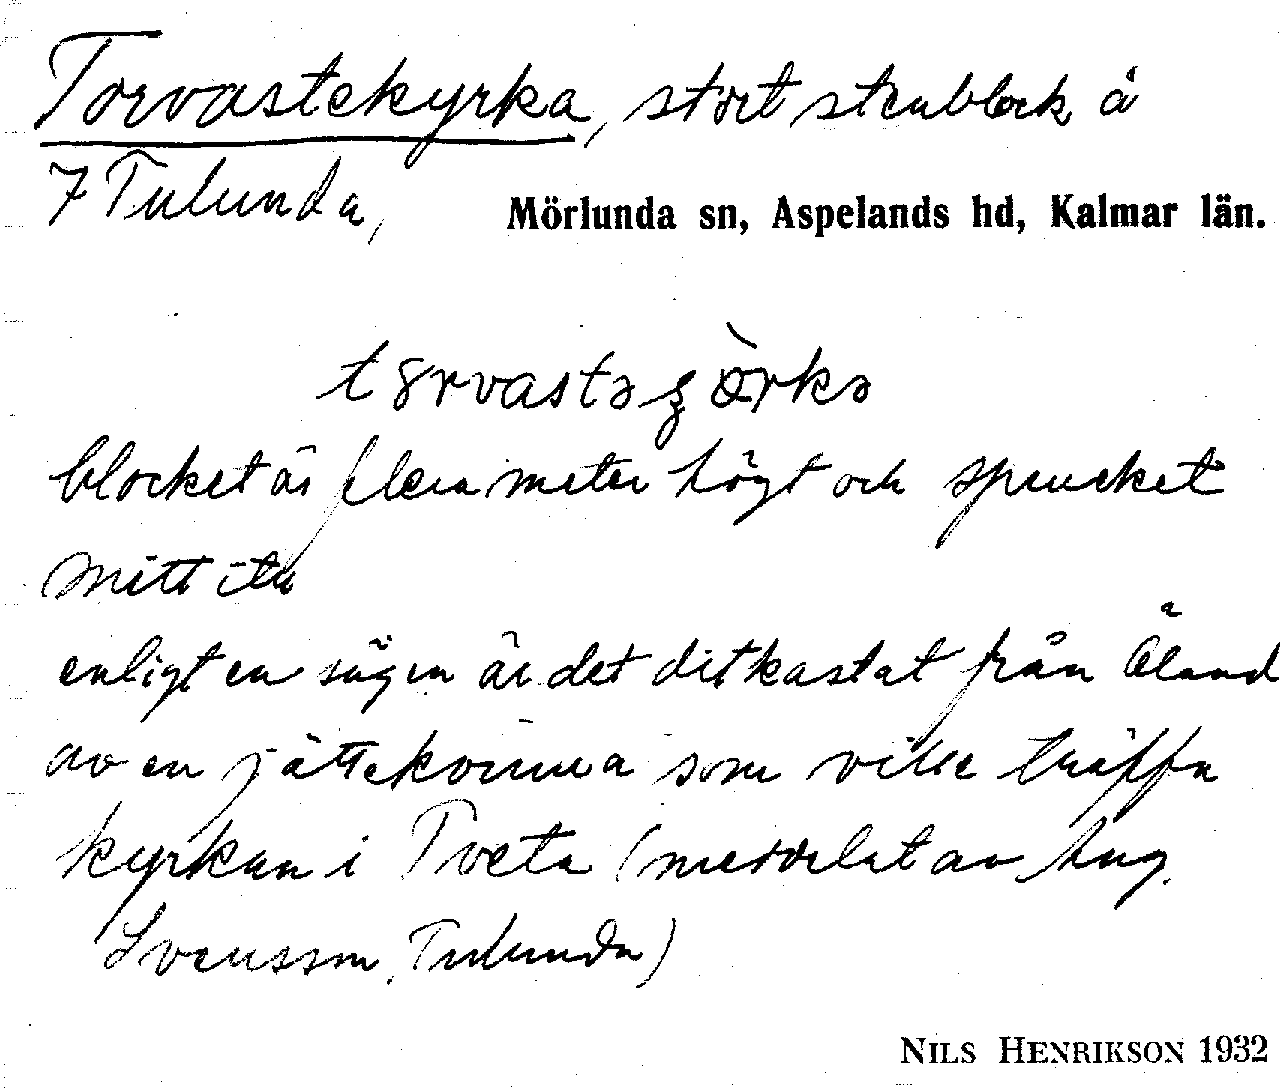 Torvastekyrka, stort stenblock å
7 Tulunda,
Mörlunda sn, Aspelands hd, Kalmar län.
blocket är flera meter högt och sprucket
mitt itu
enligt en sägen är det ditkastat från Öland
av en jättekvinna som ville träffa
kyrkan i Tveta (meddelat av Aug.
Svensson, Tulunda)
NILS HENRIKSON 1932